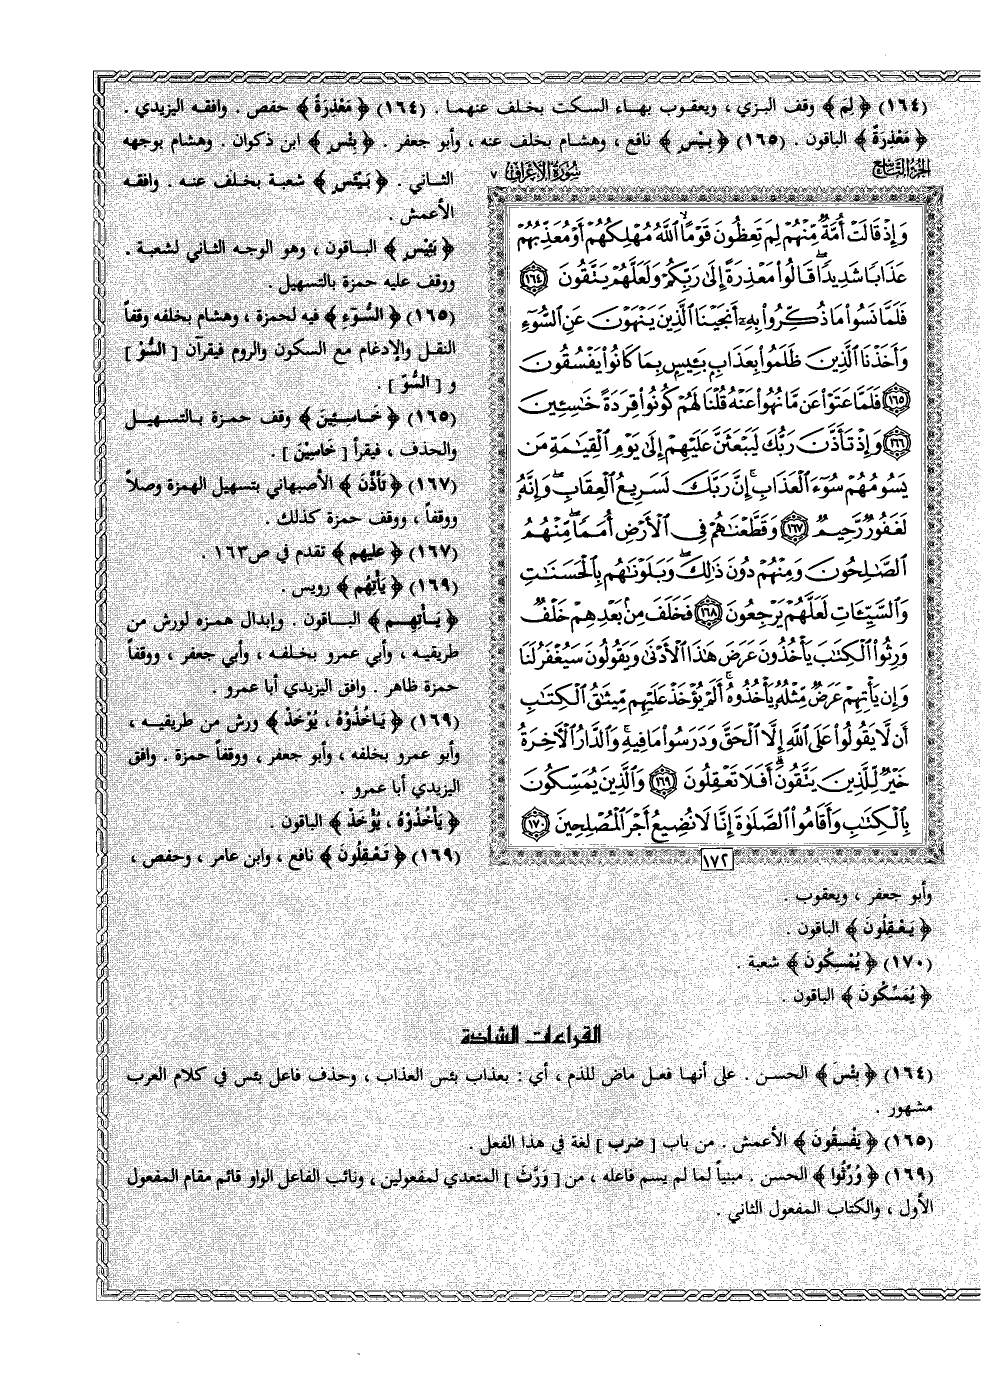 (١٦٤) ﴿ لِمَ ﴾ وقف البزي ، ويعقوب بهاء السكت بخلف عنهما . (١٦٤) ﴿ مَعْذِرَةً ﴾ حفص . وافقه اليزيدي .
﴿ مَعْذِرَةٌ ﴾ الباقون . (١٦٥) ﴿ بِيْسٍ ﴾ نافع ، وهشام بخلف عنه ، وأبو جعفر . ﴿ بِئْسٍ ﴾ ابن ذكوان . وهشام بوجهه
الثاني . ﴿ بَيْئَسٍ ﴾ شعبة بخلف عنه . وافقه
الأعمش .
﴿ بَئِيْسٍ ﴾ الباقون ، وهو الوجه الثاني لشعبة .
ووقف عليه حمزة بالتسهيل .
(١٦٥) ﴿ السُّوْءِ ﴾ فيه لحمزة ، وهشام بخلفه وقفاً
النقل والإدغام مع السكون والروم فيقرآن [ السُّوْ ]
و [ السُّوّ ] .
(١٦٥) ﴿ خَاسِئِينَ ﴾ وقف حمزة بالتسهيل
والحذف ، فيقرأ [ خَاسِيْنَ ] .
(١٦٧) ﴿ تَأَذَّنَ ﴾ الأصبهاني بتسهيل الهمزة وصلاً
ووقفاً ، ووقف حمزة كذلك .
(١٦٧) ﴿ عليهم ﴾ تقدم في ص١٦٣ .
(١٦٩) ﴿ يَأْتِهُم ﴾ رويس .
﴿ يَأْتِهِم ﴾ الباقون . وإبدال همزه لورش من
طريقيه ، وأبي عمرو بخلفه ، وأبي جعفر ، ووقفاً
حمزة ظاهر . وافق اليزيدي أبا عمرو .
(١٦٩) ﴿ يَاخُذُوْهُ ، يُوْخَذْ ﴾ ورش من طريقيه ،
وأبو عمرو بخلفه ، وأبو جعفر ، ووقفاً حمزة . وافق
اليزيدي أبا عمرو .
﴿ يَأْخُذُوْهُ ، يُؤْخَذْ ﴾ الباقون .
(١٦٩) ﴿ تَعْقِلُونَ ﴾ نافع ، وابن عامر ، وحفص ،
الجزء التاسع
سورة الأعراف ٧
وَإِذْ قَالَتْ أُمَّةٌ مِّنْهُمْ لِمَ تَعِظُونَ قَوْمًا ٱللَّهُ مُهْلِكُهُمْ أَوْ مُعَذِّبُهُمْ
عَذَابًا شَدِيدًا ۖ قَالُوا۟ مَعْذِرَةً إِلَىٰ رَبِّكُمْ وَلَعَلَّهُمْ يَتَّقُونَ ١٦٤
فَلَمَّا نَسُوا۟ مَا ذُكِّرُوا۟ بِهِۦٓ أَنجَيْنَا ٱلَّذِينَ يَنْهَوْنَ عَنِ ٱلسُّوٓءِ
وَأَخَذْنَا ٱلَّذِينَ ظَلَمُوا۟ بِعَذَابٍۭ بَـِٔيسٍۭ بِمَا كَانُوا۟ يَفْسُقُونَ
١٦٥ فَلَمَّا عَتَوْا۟ عَن مَّا نُهُوا۟ عَنْهُ قُلْنَا لَهُمْ كُونُوا۟ قِرَدَةً خَٰسِـِٔينَ
١٦٦ وَإِذْ تَأَذَّنَ رَبُّكَ لَيَبْعَثَنَّ عَلَيْهِمْ إِلَىٰ يَوْمِ ٱلْقِيَٰمَةِ مَن
يَسُومُهُمْ سُوٓءَ ٱلْعَذَابِ ۗ إِنَّ رَبَّكَ لَسَرِيعُ ٱلْعِقَابِ ۖ وَإِنَّهُۥ
لَغَفُورٌ رَّحِيمٌ ١٦٧ وَقَطَّعْنَٰهُمْ فِى ٱلْأَرْضِ أُمَمًا ۖ مِّنْهُمُ
ٱلصَّٰلِحُونَ وَمِنْهُمْ دُونَ ذَٰلِكَ ۖ وَبَلَوْنَٰهُم بِٱلْحَسَنَٰتِ
وَٱلسَّيِّـَٔاتِ لَعَلَّهُمْ يَرْجِعُونَ ١٦٨ فَخَلَفَ مِنۢ بَعْدِهِمْ خَلْفٌ
وَرِثُوا۟ ٱلْكِتَٰبَ يَأْخُذُونَ عَرَضَ هَٰذَا ٱلْأَدْنَىٰ وَيَقُولُونَ سَيُغْفَرُ لَنَا
وَإِن يَأْتِهِمْ عَرَضٌ مِّثْلُهُۥ يَأْخُذُوهُ ۚ أَلَمْ يُؤْخَذْ عَلَيْهِم مِّيثَٰقُ ٱلْكِتَٰبِ
أَن لَّا يَقُولُوا۟ عَلَى ٱللَّهِ إِلَّا ٱلْحَقَّ وَدَرَسُوا۟ مَا فِيهِ ۗ وَٱلدَّارُ ٱلْءَاخِرَةُ
خَيْرٌ لِّلَّذِينَ يَتَّقُونَ ۗ أَفَلَا تَعْقِلُونَ ١٦٩ وَٱلَّذِينَ يُمَسِّكُونَ
بِٱلْكِتَٰبِ وَأَقَامُوا۟ ٱلصَّلَوٰةَ إِنَّا لَا نُضِيعُ أَجْرَ ٱلْمُصْلِحِينَ ١٧٠
١٧٢
وأبو جعفر ، ويعقوب .
﴿ يَعْقِلُونَ ﴾ الباقون .
(١٧٠) ﴿ يُمْسِكُونَ ﴾ شعبة .
﴿ يُمَسِّكُونَ ﴾ الباقون .
القراءات الشاذة
(١٦٤) ﴿ بِئْسَ ﴾ الحسن . على أنها فعل ماض للذم ، أي : بعذاب بئس العذاب ، وحذف فاعل بئس في كلام العرب
مشهور .
(١٦٥) ﴿ يَفْسِقُونَ ﴾ الأعمش . من باب [ ضرب ] لغة في هذا الفعل .
(١٦٩) ﴿ وُرِّثُوا ﴾ الحسن . مبنياً لما لم يسم فاعله ، من [ وَرَّثَ ] المتعدي لمفعولين ، ونائب الفاعل الواو قائم مقام المفعول
الأول ، والكتاب المفعول الثاني .